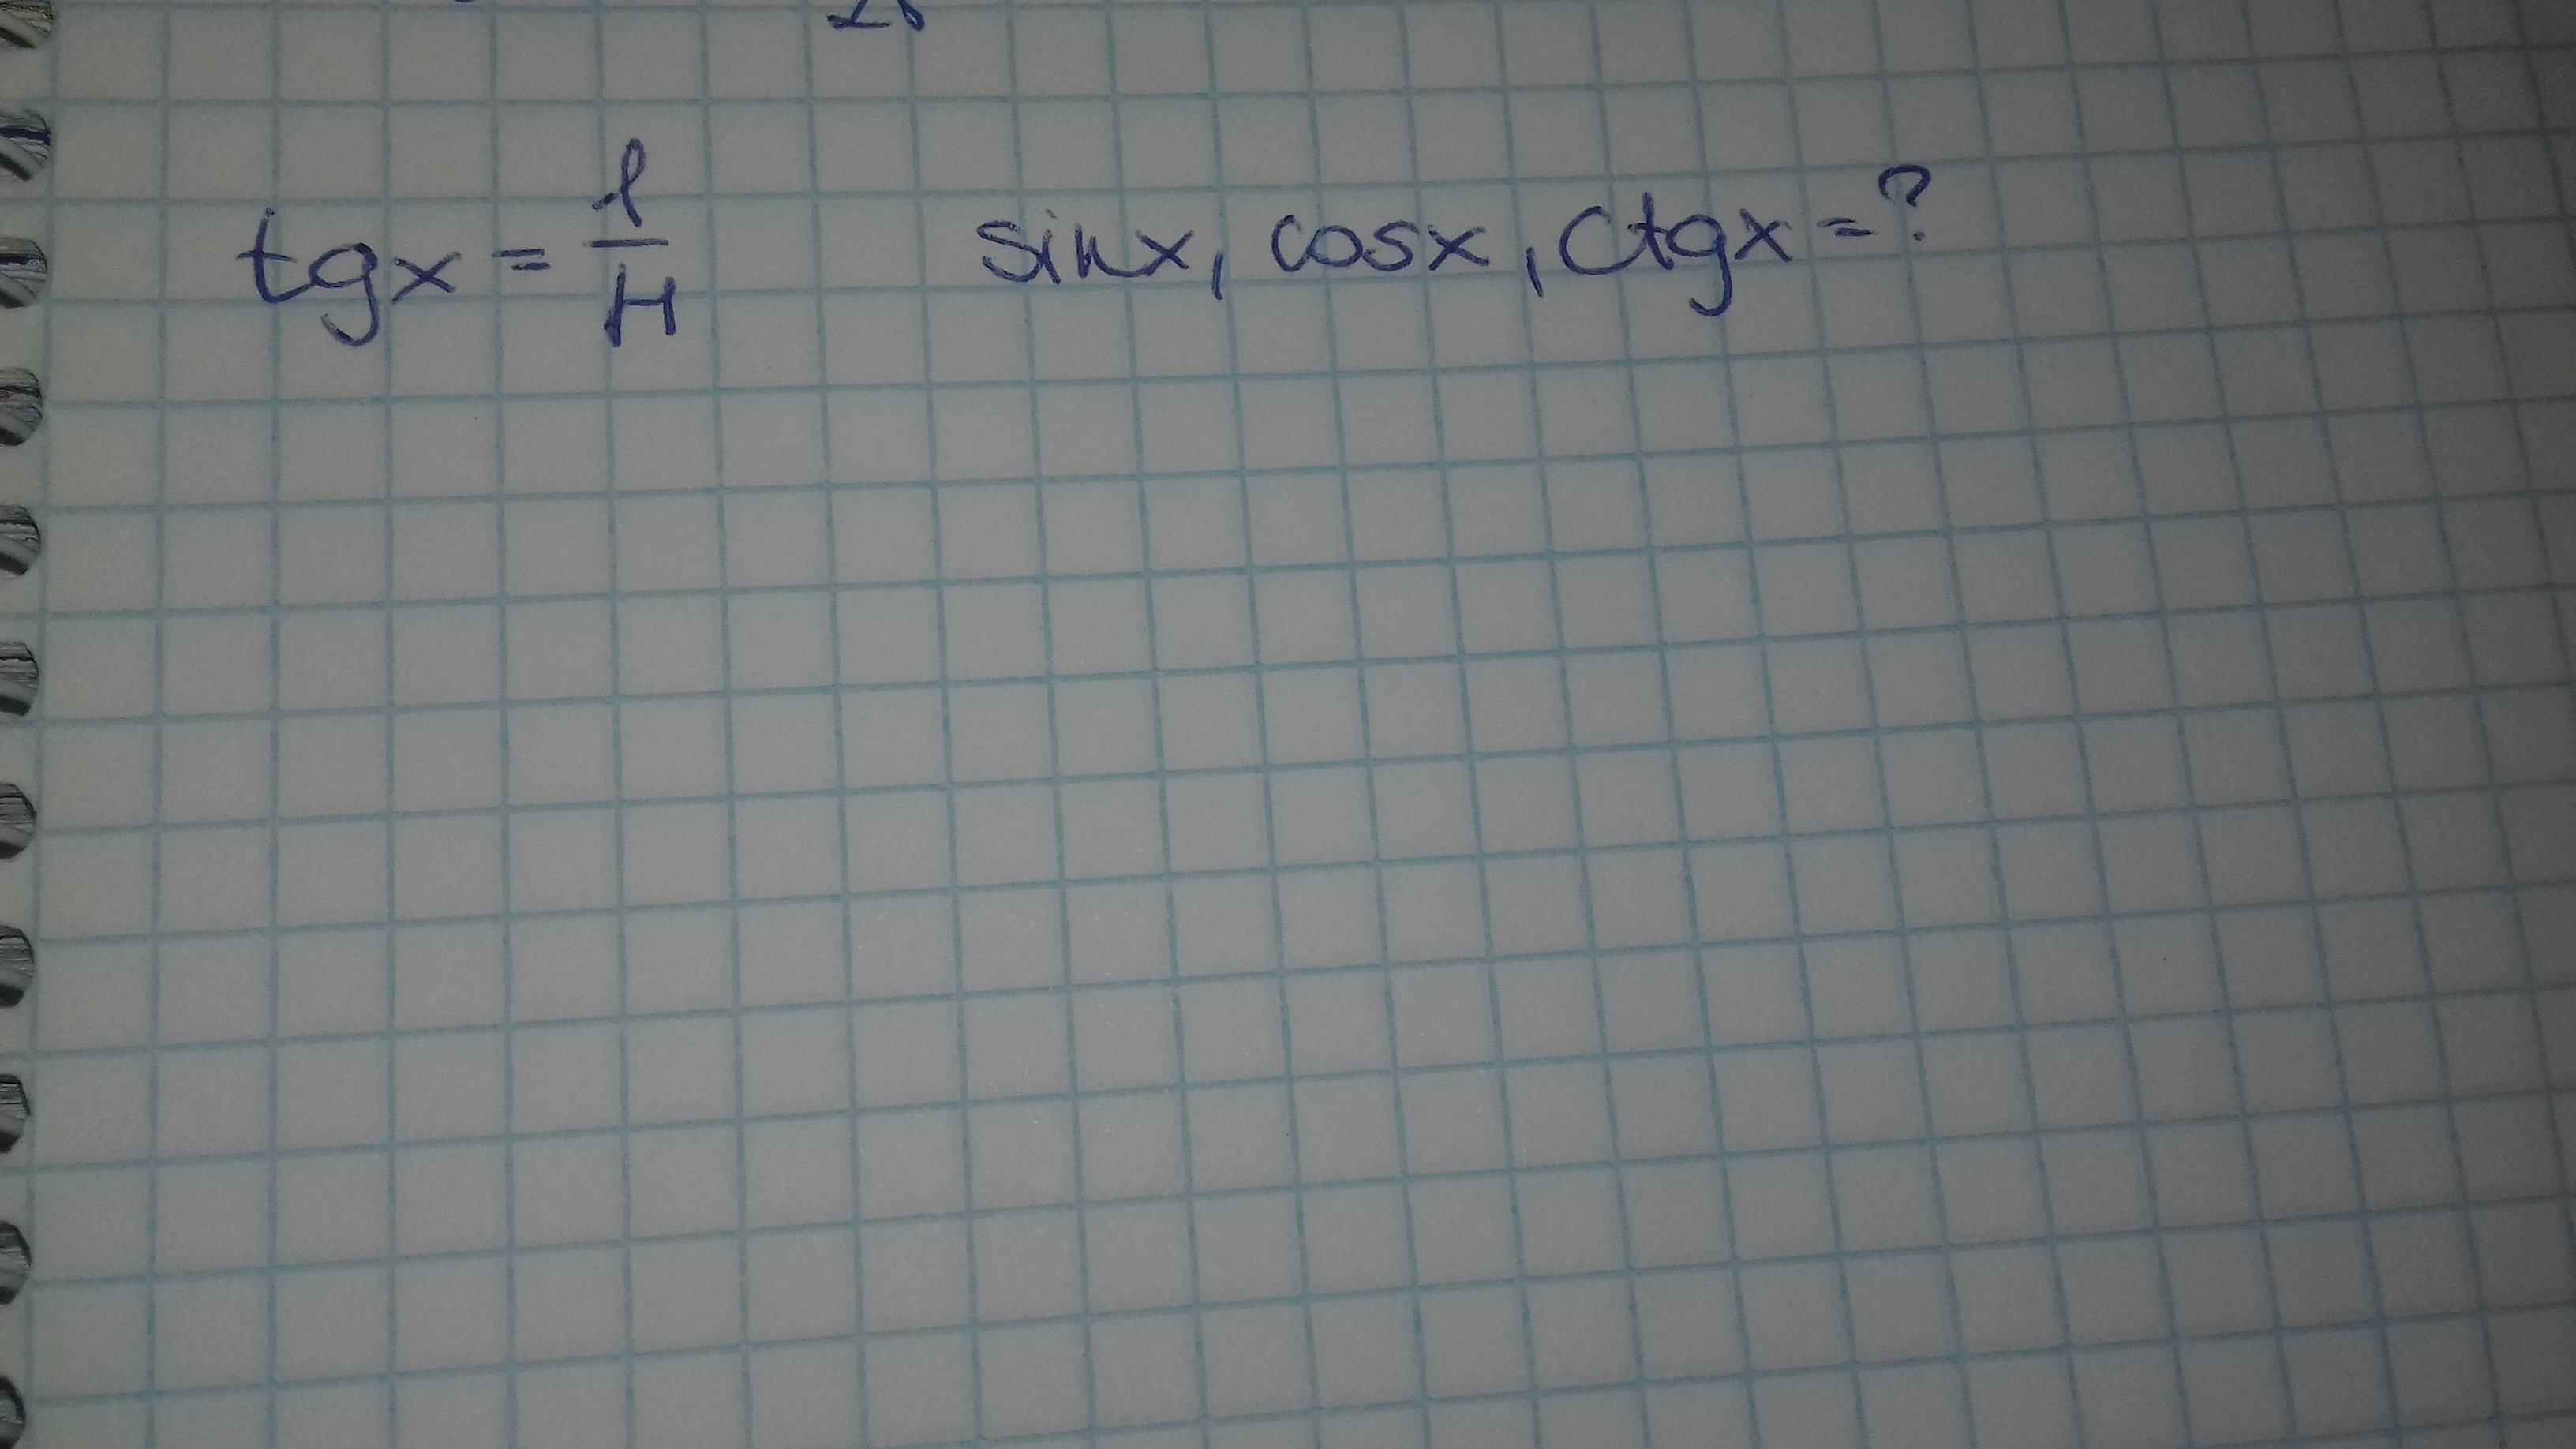 tgx = l/H sinx, cosx, ctgx = ?